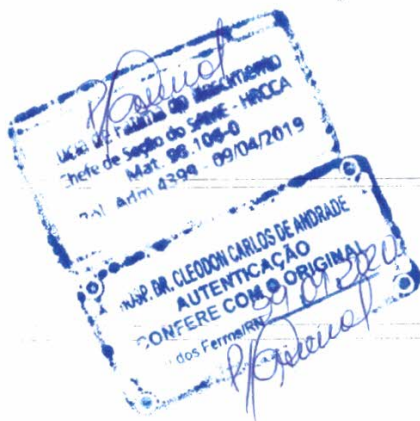 de Fatima do Nascimento
Chefe de Seção do SAME - HRCCA
Mat. 98.104-0
Adm 4394 - 09/04/2019
HOSP. DR. CLEODON CARLOS DE ANDRADE
AUTENTICAÇÃO
CONFERE COM O ORIGINAL
dos Ferros/RN